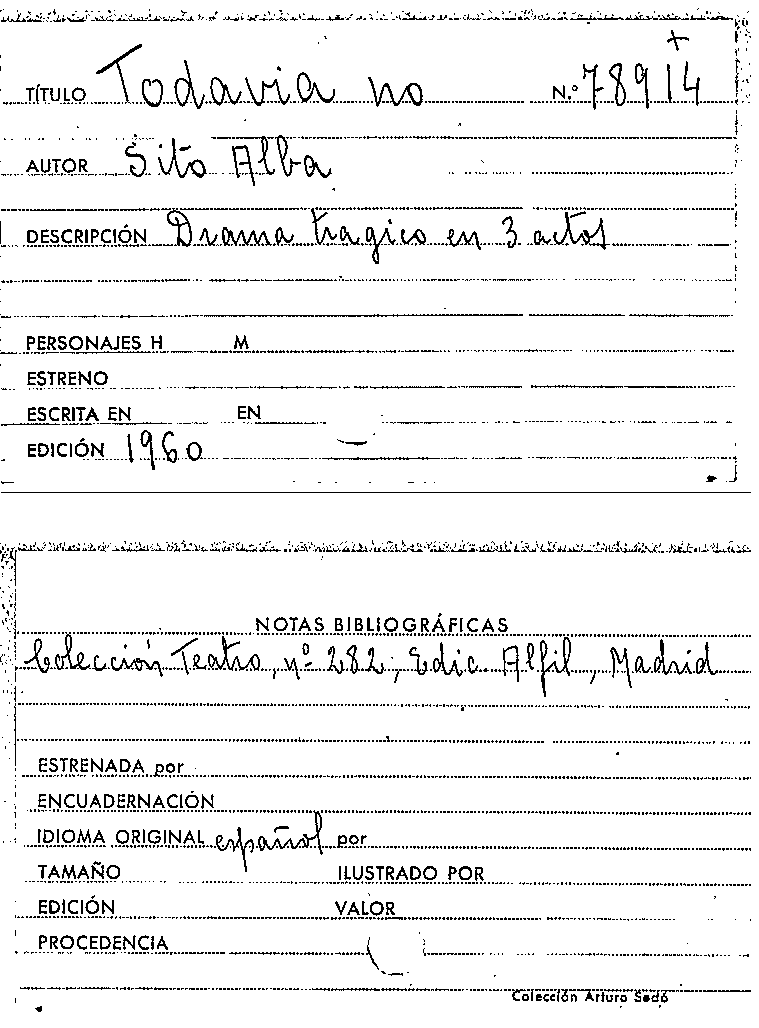 +
TÍTULO Todavia no N.º 78914
AUTOR Sito Alba
DESCRIPCIÓN Drama tragico en 3 actos
PERSONAJES H M
ESTRENO
ESCRITA EN EN
EDICIÓN 1960
NOTAS BIBLIOGRÁFICAS
Colección Teatro, nº 282, Edic. Alfil, Madrid
ESTRENADA por
ENCUADERNACIÓN
IDIOMA ORIGINAL español por
TAMAÑO ILUSTRADO POR
EDICIÓN VALOR
PROCEDENCIA
Colección Arturo Sedó